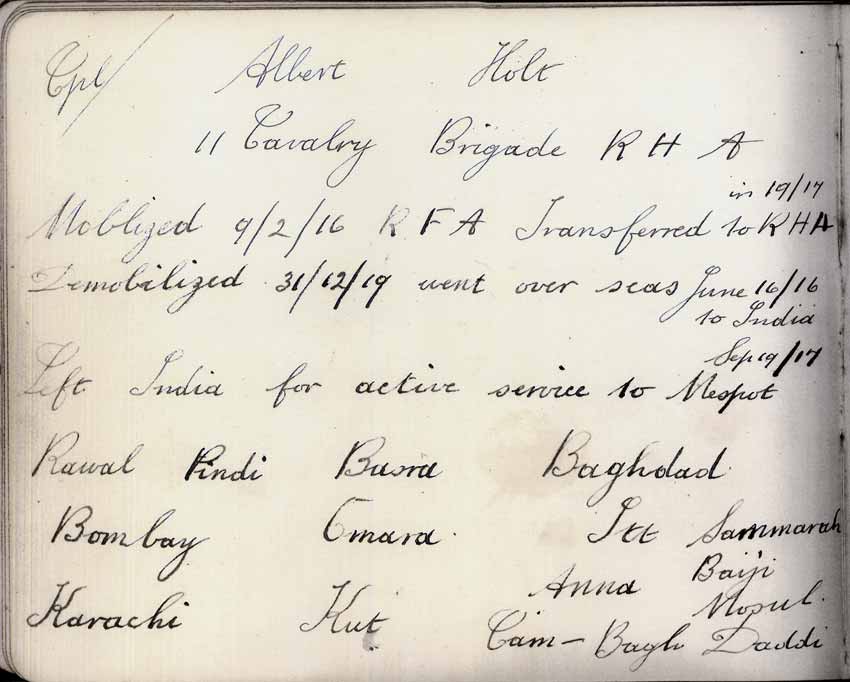 Cpl/ Albert Holt
11 Cavalry Brigade R H A
in 19/17
Moblized 9/2/16 R F A Transferred to R H A
Demobilized 31/12/19 went over seas June 16/16
to India
Sep 19/17
Left India for active service to Mespot
Rawal Pindi Busra Baghdad
Bombay Omara Itt Sammarah
Anna Baiji
Mosul.
Karachi Kut Cam - Bagh Daddi